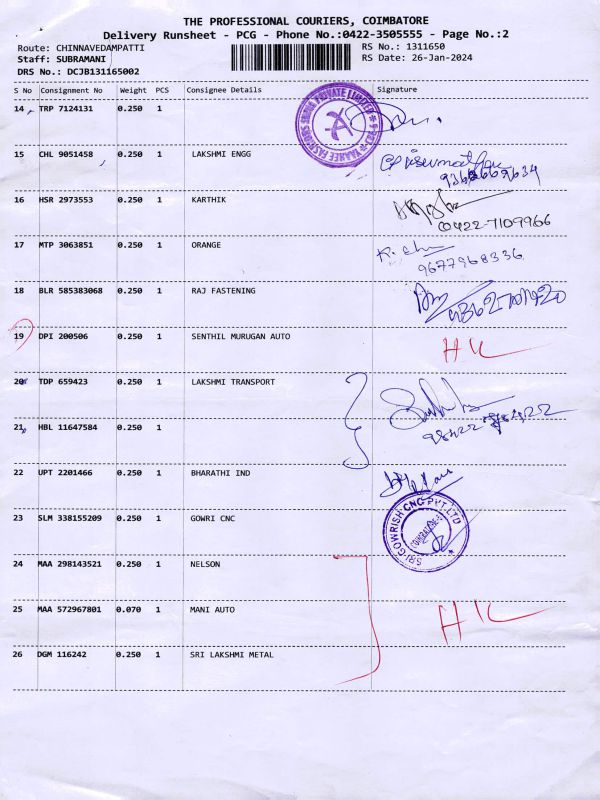 THE PROFESSIONAL COURIERS, COIMBATORE
Delivery Runsheet - PCG - Phone No.:0422-3505555 - Page No.:2
Route: CHINNAVEDAMPATTI RS No.: 1311650
Staff: SUBRAMANI RS Date: 26-Jan-2024
DRS No.: DCJB131165002
S No Consignment No Weight PCS Consignee Details Signature
14 TRP 7124131 0.250 1
15 CHL 9051458 0.250 1 LAKSHMI ENGG
16 HSR 2973553 0.250 1 KARTHIK
0422-7109966
17 MTP 3063851 0.250 1 ORANGE
9677968336
18 BLR 585383068 0.250 1 RAJ FASTENING
19 DPI 200506 0.250 1 SENTHIL MURUGAN AUTO
20 TDP 659423 0.250 1 LAKSHMI TRANSPORT
21 HBL 11647584 0.250 1
22 UPT 2201466 0.250 1 BHARATHI IND
23 SLM 338155209 0.250 1 GOWRI CNC
SRI GOWRISH CNC PVT LTD
24 MAA 298143521 0.250 1 NELSON
25 MAA 572967801 0.070 1 MANI AUTO
26 DGM 116242 0.250 1 SRI LAKSHMI METAL